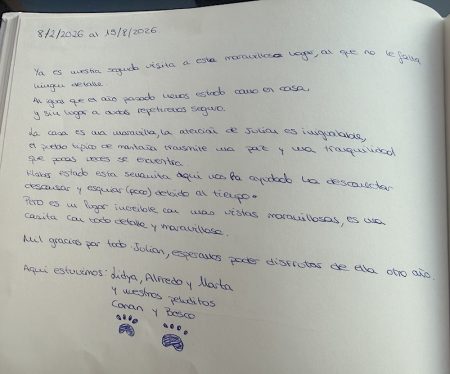 8/2/2026 al 15/8/2026
Ya es nuestra segunda visita a este maravilloso lugar, al que no le falta
ningún detalle.
Al igual que el año pasado hemos estado como en casa,
y sin lugar a dudas repetiremos seguro.
La casa es una maravilla, la atención de Julián es inigualable,
el pueblo típico de montaña transmite una paz y una tranquilidad
que pocas veces se encuentra.
Haber estado esta semanita aquí nos ha ayudado ha desconectar
descansar y esquiar (poco) debido al tiempo.
Pero es un lugar increíble con unas vistas maravillosas, es una
casita con todo detalle y maravillosa.
Mil gracias por todo Julián, esperamos poder disfrutar de ella otro año.
Aquí estuvimos: Lidya, Alfredo y Marta
y nuestros peluditos
Conan y Bosco